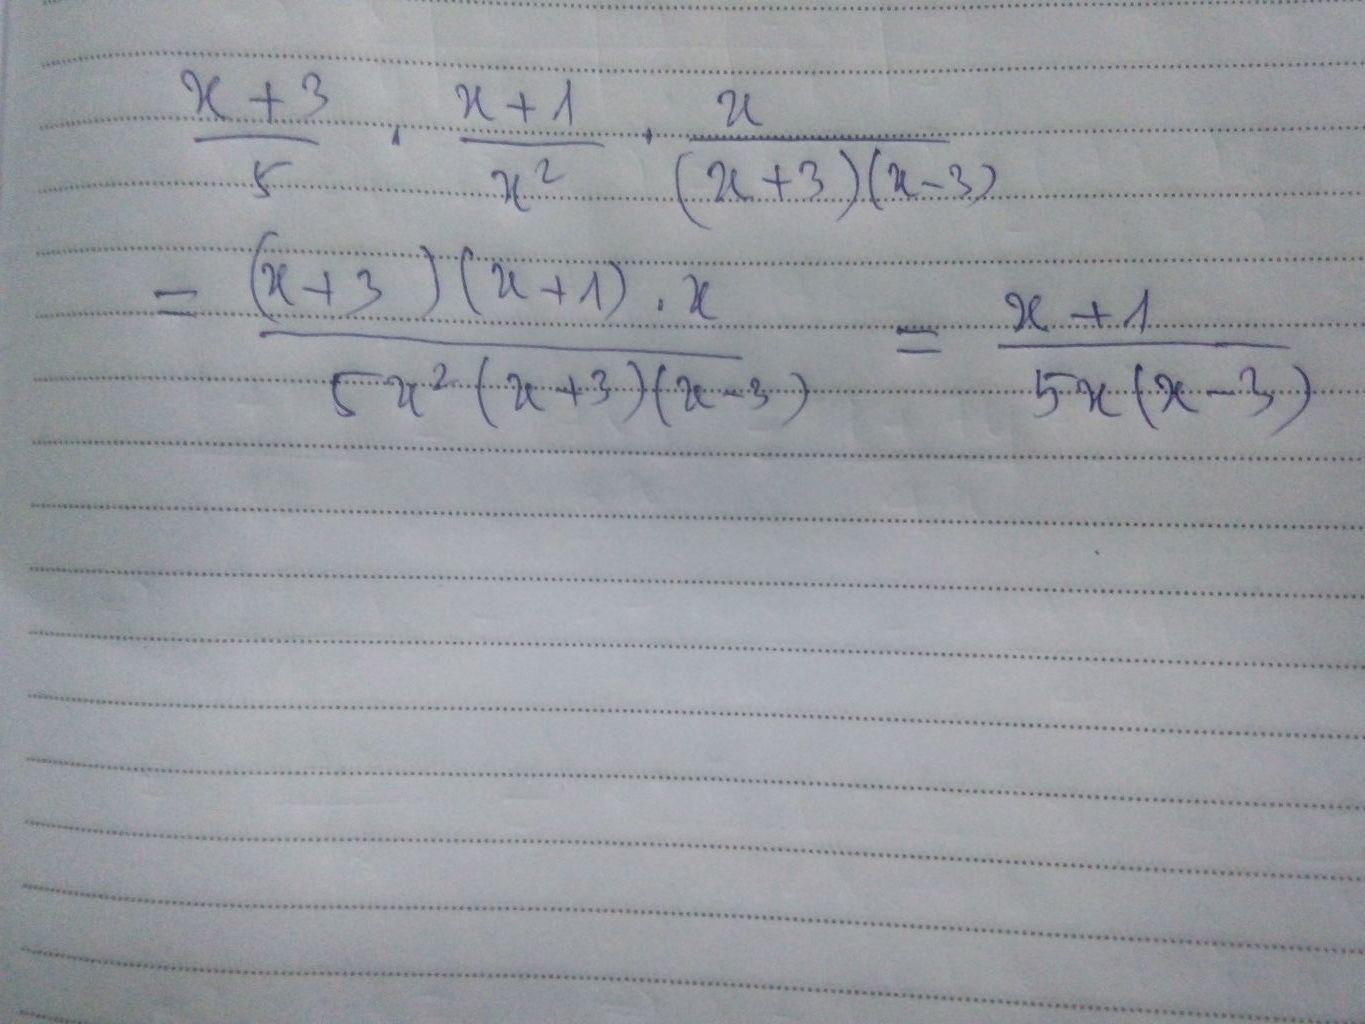 x + 3 / 5 . x + 1 / x² . x / (x + 3)(x - 3)
= (x + 3)(x + 1) . x / 5x²(x + 3)(x - 3) = x + 1 / 5x(x - 3)